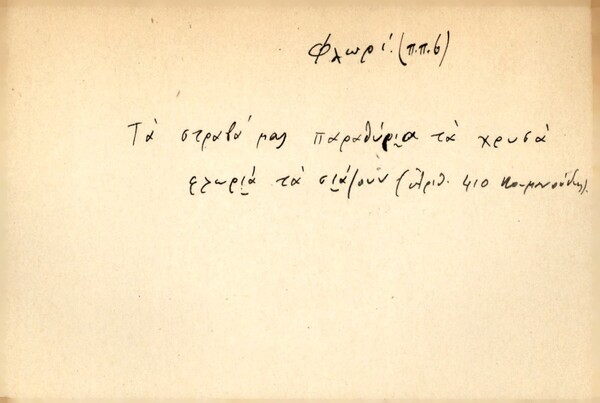 Φλωρί. (π.π.6)
Τὰ στραβά μας παραθύρια τὰ χρυσὰ
φλωριά τὰ σιάζουν (Ἀριθ. 410 Κουμανούδης).